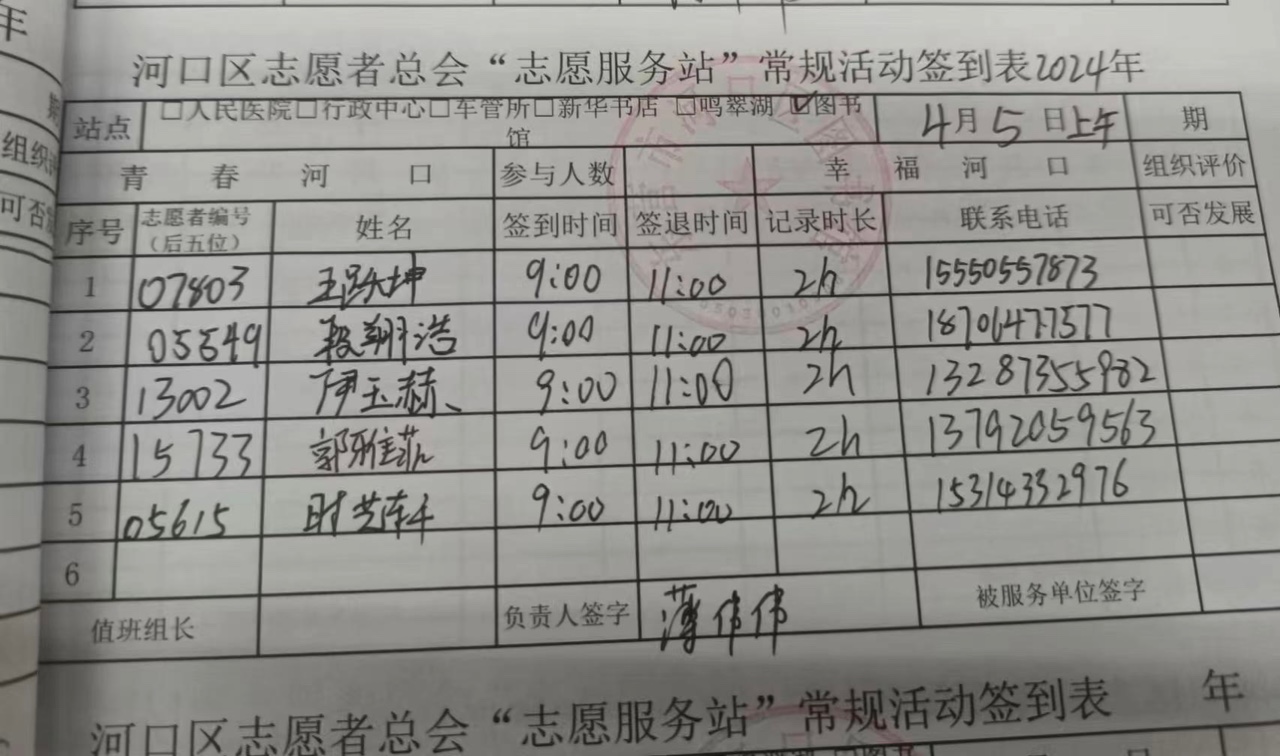 年
河口区志愿者总会“志愿服务站”常规活动签到表2024年
站点 □人民医院□行政中心□车管所□新华书店 □鸣翠湖 ☑图书馆 4月5日上午 期
青春河口 参与人数 幸福河口 组织评价
序号 志愿者编号（后五位） 姓名 签到时间 签退时间 记录时长 联系电话 可否发展
1 07803 王跃坤 9:00 11:00 2h 15550557873
2 05549 段翔浩 9:00 11:00 2h 18706477577
3 13002 伊玉赫 9:00 11:00 2h 13287355982
4 15733 郭雅菲 9:00 11:00 2h 13792059563
5 05615 时 9:00 11:00 2h 15314332976
6
值班组长 负责人签字 薄伟伟 被服务单位签字
河口区志愿者总会“志愿服务站”常规活动签到表 年